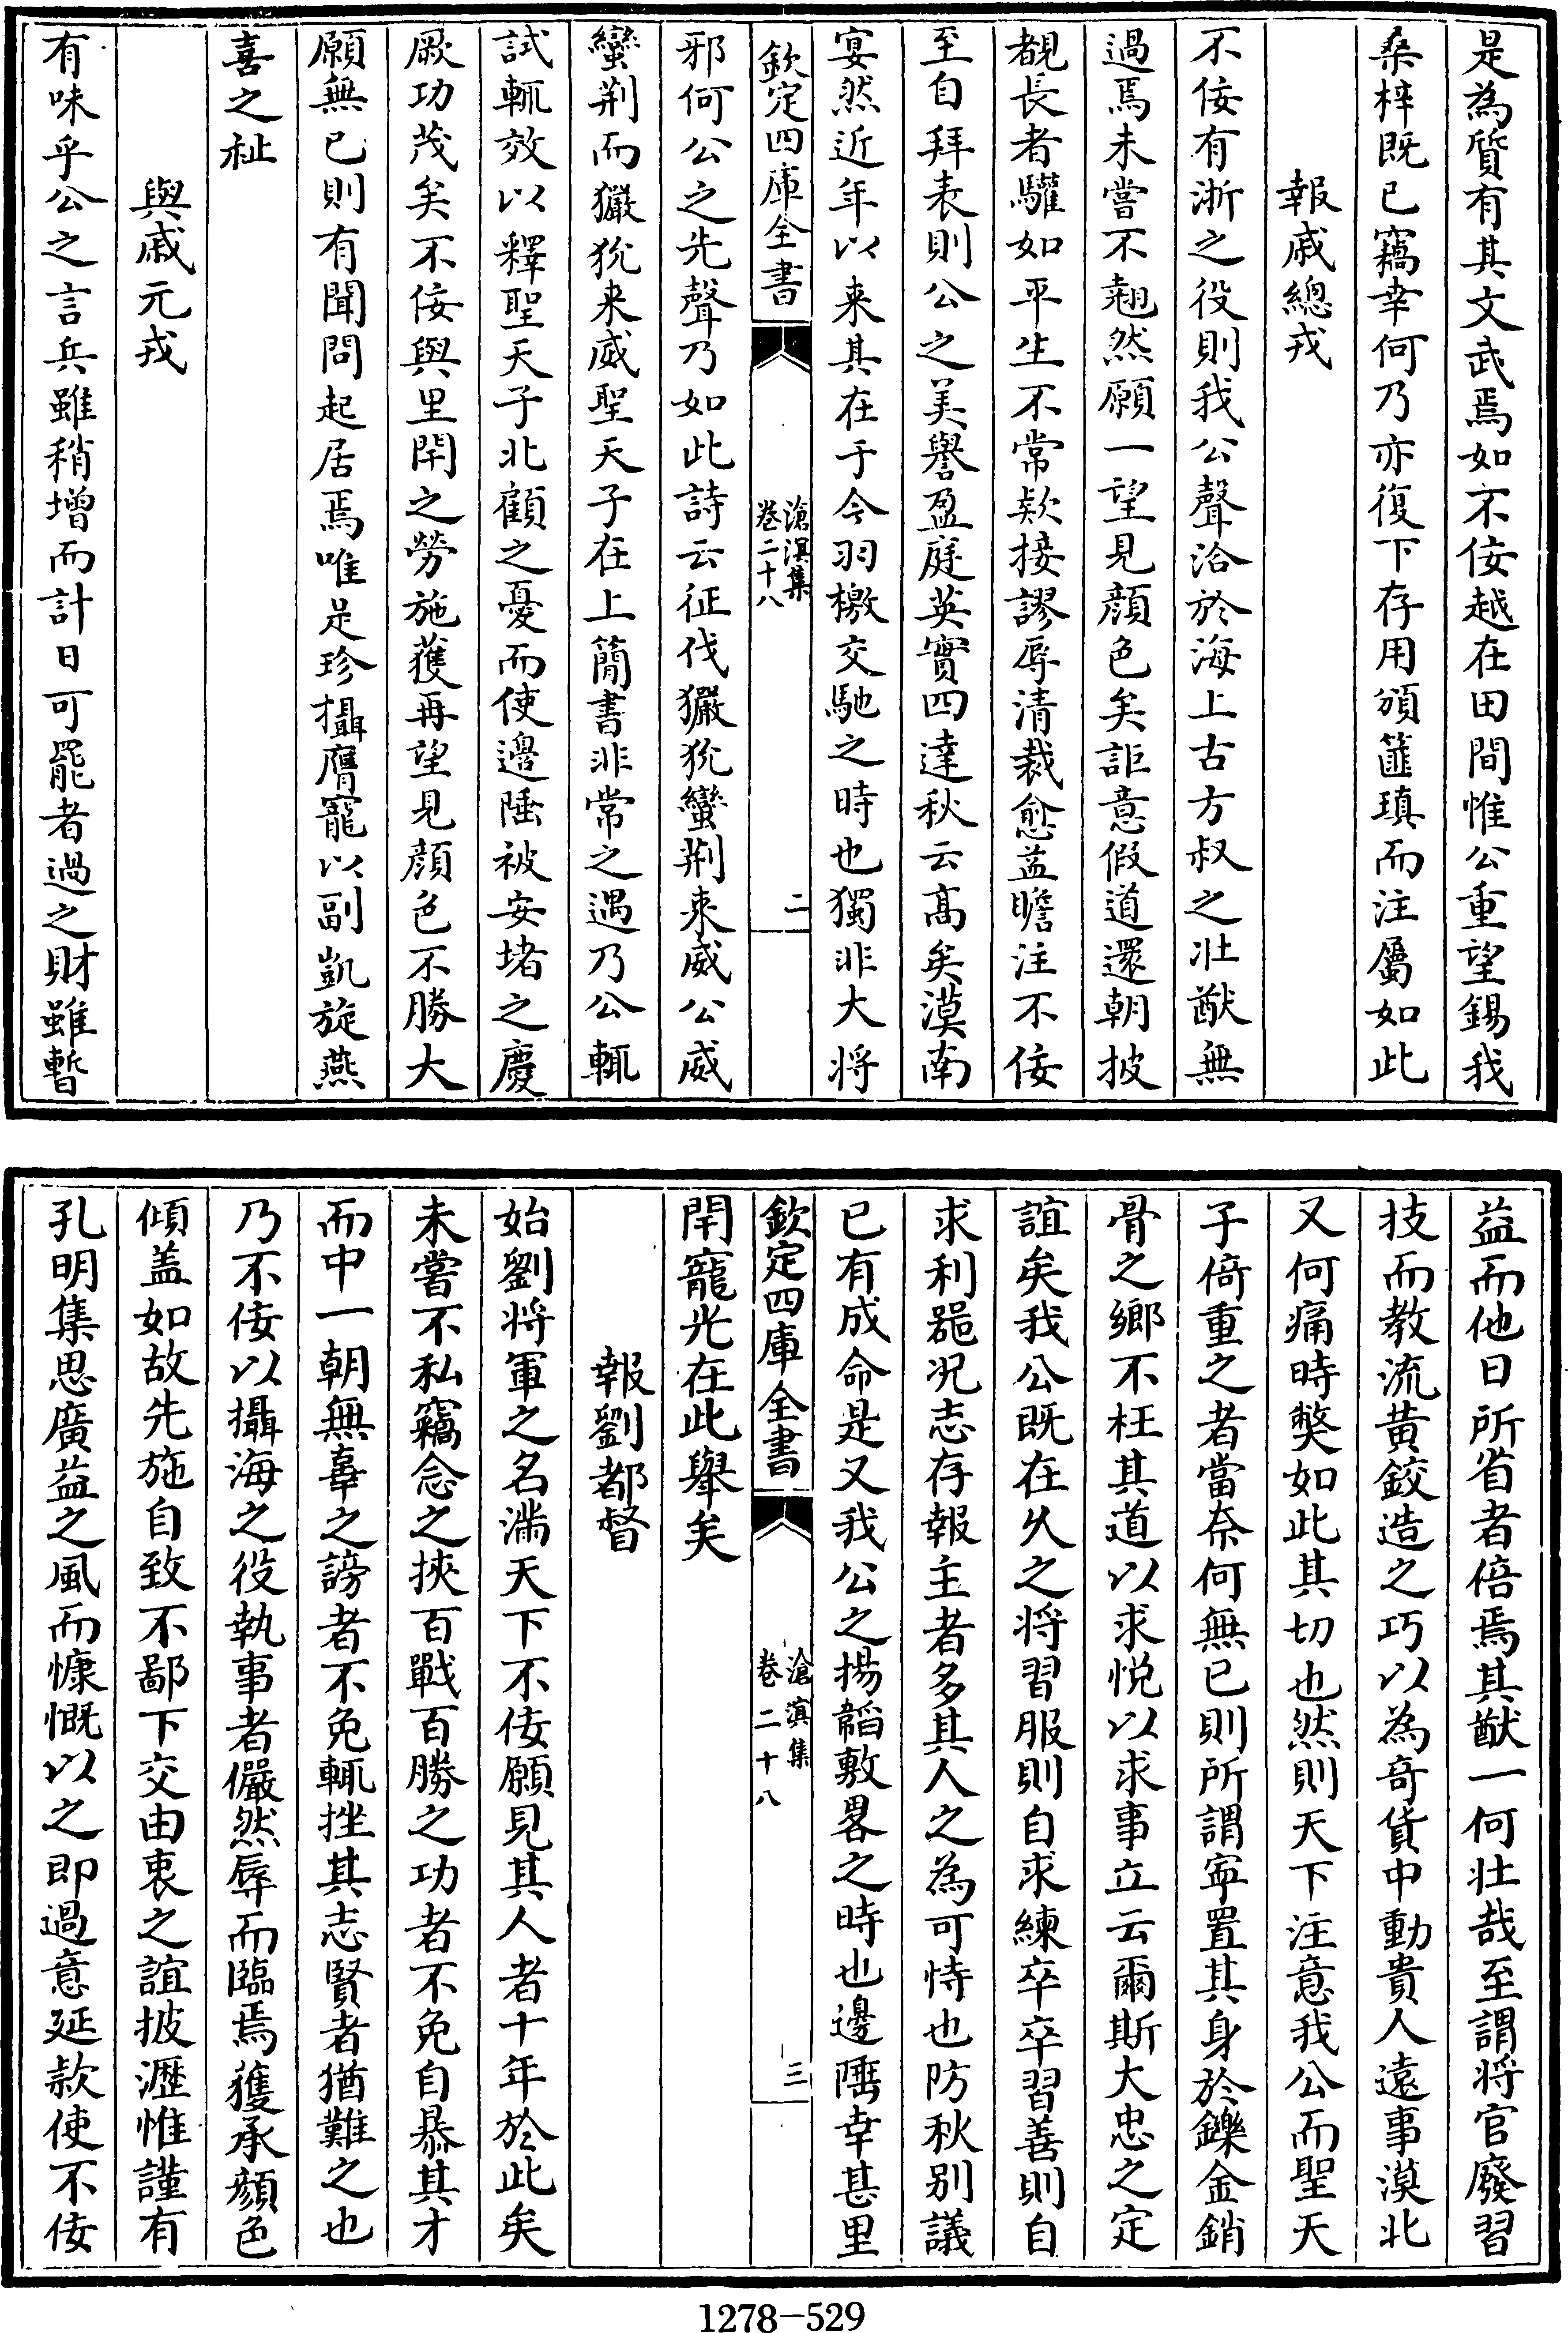 是為質有其文武焉如不佞越在田間惟公重望錫我
桑梓既已竊幸何乃亦復下存用頒篚瑱而注屬如此
報戚總戎
不佞有浙之役則我公聲洽於海上古方叔之壯猷無
過焉未嘗不翹然願一望見顔色矣詎意假道還朝披
覩長者驩如平生不常欵接謬辱清裁愈益瞻注不佞
至自拜表則公之美譽盈庭英實四達秋云髙矣漠南
宴然近年以来其在于今羽檄交馳之時也獨非大将
欽定四庫全書
滄溟集
卷二十八
二
邪何公之先聲乃如此詩云征伐玁狁蠻荆来威公威
蠻荆而玁狁来威聖天子在上簡書非常之遇乃公輒
試輒效以釋聖天子北顧之憂而使邊陲被安堵之慶
厥功茂矣不佞與里閈之勞施獲再望見顔色不勝大
願無已則有聞問起居焉唯足珍攝膺寵以副凱旋燕
喜之祉
與戚元戎
有味乎公之言兵雖稍增而計日可罷者過之財雖暫
益而他日所省者倍焉其猷一何壯哉至謂将官廢習
技而教流黄鉸造之巧以為竒貨中動貴人遠事漠北
又何痛時獘如此其切也然則天下注意我公而聖天
子倚重之者當奈何無已則所謂寧置其身於鑠金銷
骨之鄉不枉其道以求悦以求事立云爾斯大忠之定
誼矣我公既在久之将習服則自求練卒卒習善則自
求利噐况志存報主者多其人之為可恃也防秋别議
已有成命是又我公之揚韜敷畧之時也邊陲幸甚里
欽定四庫全書
滄溟集
卷二十八
三
閈寵光在此舉矣
報劉都督
始劉将軍之名满天下不佞願見其人者十年於此矣
未嘗不私竊念之挾百戰百勝之功者不免自暴其才
而中一朝無辜之謗者不免輒挫其志賢者猶難之也
乃不佞以攝海之役執事者儼然辱而臨焉獲承顔色
傾盖如故先施自致不鄙下交由衷之誼披瀝惟謹有
孔明集思廣益之風而慷慨以之即過意延款使不佞
1278-529